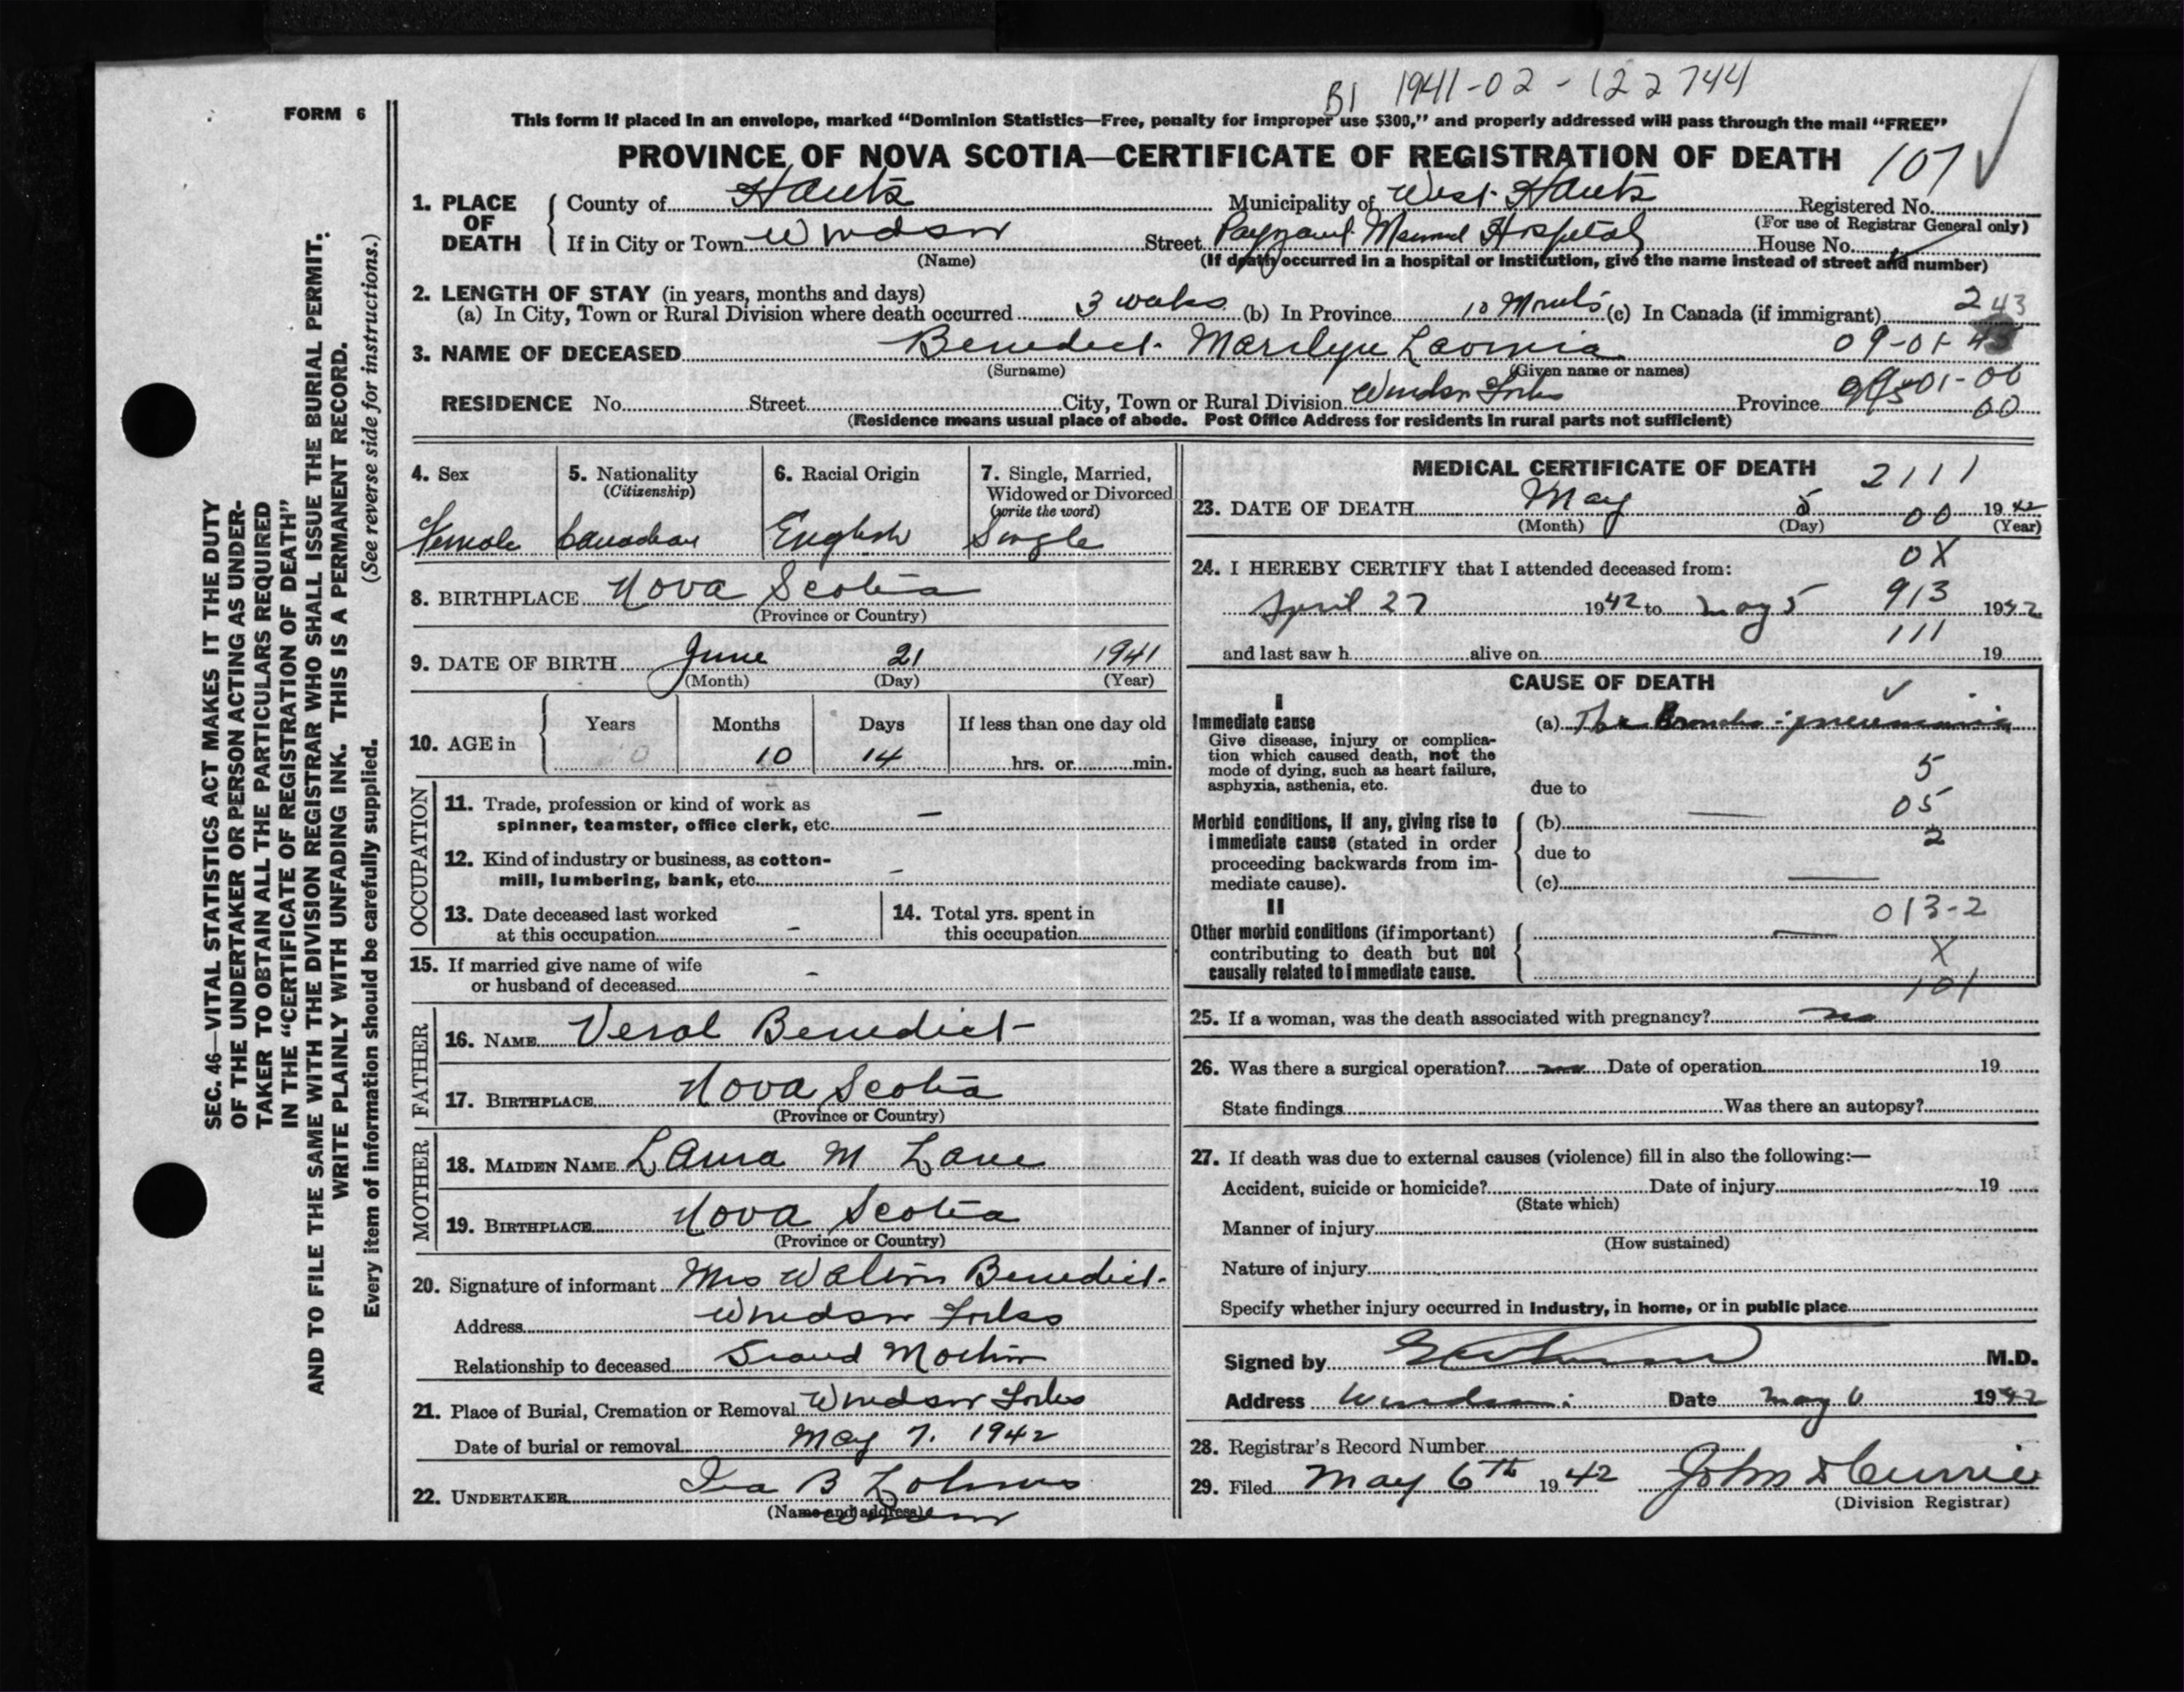 B1 1941-02-122744
FORM 6
This form if placed in an envelope, marked "Dominion Statistics—Free, penalty for improper use $300," and properly addressed will pass through the mail "FREE"
PROVINCE OF NOVA SCOTIA—CERTIFICATE OF REGISTRATION OF DEATH 107
1. PLACE OF DEATH County of Hants Municipality of West Hants Registered No.
(For use of Registrar General only)
If in City or Town Windsor Street Payzant Memorial Hospital House No.
(Name) (If death occurred in a hospital or institution, give the name instead of street and number)
2. LENGTH OF STAY (in years, months and days)
(a) In City, Town or Rural Division where death occurred 3 weeks (b) In Province 10 Months (c) In Canada (if immigrant) 243
3. NAME OF DECEASED Benedict Marilyn Lavinia 09-01-
(Surname) (Given name or names)
RESIDENCE No. Street City, Town or Rural Division Windsor Forks Province
00
(Residence means usual place of abode. Post Office Address for residents in rural parts not sufficient)
4. Sex 5. Nationality (Citizenship) 6. Racial Origin 7. Single, Married, Widowed or Divorced (write the word)
Female Canadian English Single
8. BIRTHPLACE Nova Scotia
(Province or Country)
9. DATE OF BIRTH June 21 1941
(Month) (Day) (Year)
10. AGE in Years Months Days If less than one day old
0 10 14 hrs. or min.
OCCUPATION
11. Trade, profession or kind of work as
spinner, teamster, office clerk, etc. —
12. Kind of industry or business, as cotton-
mill, lumbering, bank, etc. –
13. Date deceased last worked
at this occupation –
14. Total yrs. spent in
this occupation
15. If married give name of wife
or husband of deceased –
FATHER
16. NAME Veral Benedict
17. BIRTHPLACE Nova Scotia
(Province or Country)
MOTHER
18. MAIDEN NAME Laura M Lane
19. BIRTHPLACE Nova Scotia
(Province or Country)
20. Signature of informant Mrs Walter Benedict
Address Windsor Forks
Relationship to deceased Grand Mother
21. Place of Burial, Cremation or Removal Windsor Forks
Date of burial or removal May 7. 1942
22. UNDERTAKER Ira B
(Name and address) Windsor
MEDICAL CERTIFICATE OF DEATH 2111
23. DATE OF DEATH May 5 00 1942
(Month) (Day) (Year)
0X
24. I HEREBY CERTIFY that I attended deceased from:
April 27 1942 to May 5 913 1942
111
and last saw h alive on 19
CAUSE OF DEATH
I
Immediate cause (a) Broncho-pneumonia
Give disease, injury or complica-
tion which caused death, not the
mode of dying, such as heart failure,
asphyxia, asthenia, etc.
5
due to
05
Morbid conditions, if any, giving rise to
immediate cause (stated in order
proceeding backwards from im-
mediate cause).
(b) —
2
due to
(c) —
II 013-2
Other morbid conditions (if important)
contributing to death but not
causally related to immediate cause.
—
X
101
25. If a woman, was the death associated with pregnancy? no
26. Was there a surgical operation? no Date of operation 19
State findings Was there an autopsy?
27. If death was due to external causes (violence) fill in also the following:—
Accident, suicide or homicide? Date of injury 19
(State which)
Manner of injury
(How sustained)
Nature of injury
Specify whether injury occurred in industry, in home, or in public place
Signed by M.D.
Address Windsor Date May 6 1942
28. Registrar's Record Number
29. Filed May 6th 1942 John D Currie
(Division Registrar)
SEC. 46—VITAL STATISTICS ACT MAKES IT THE DUTY
OF THE UNDERTAKER OR PERSON ACTING AS UNDER-
TAKER TO OBTAIN ALL THE PARTICULARS REQUIRED
IN THE "CERTIFICATE OF REGISTRATION OF DEATH"
AND TO FILE THE SAME WITH THE DIVISION REGISTRAR WHO SHALL ISSUE THE BURIAL PERMIT.
WRITE PLAINLY WITH UNFADING INK. THIS IS A PERMANENT RECORD.
Every item of information should be carefully supplied. (See reverse side for instructions.)